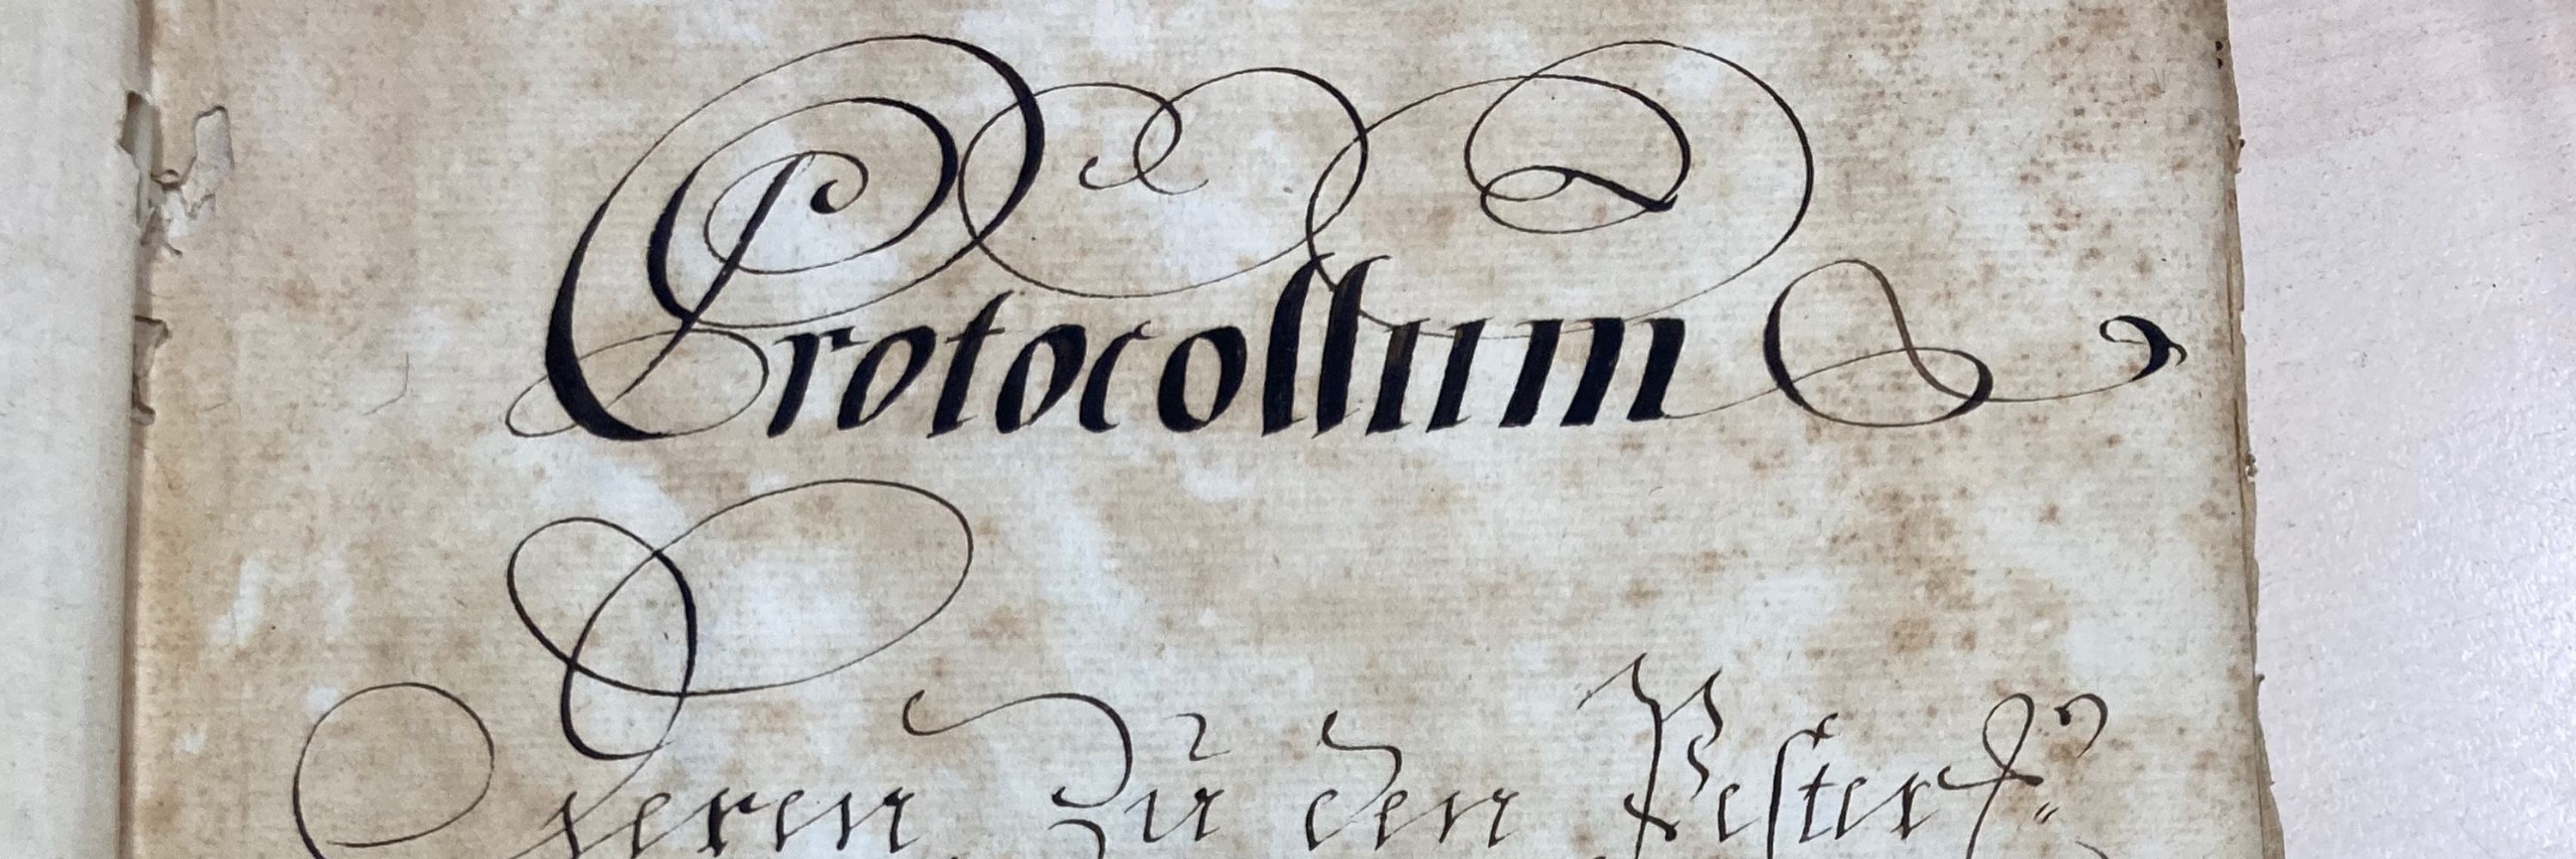 Protocollum
Deren Zu den Pester